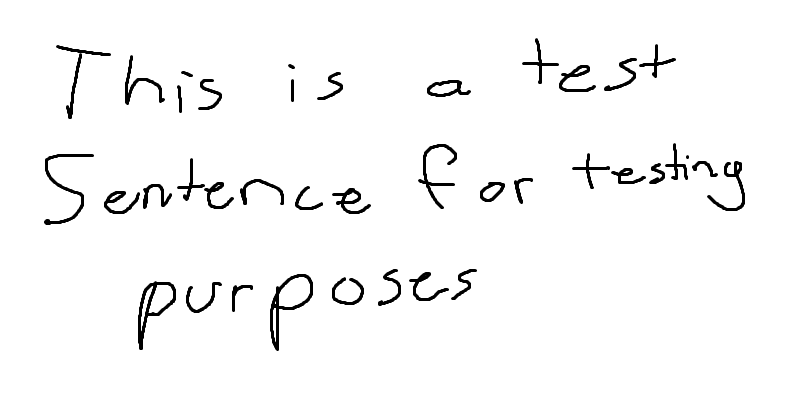 This is a test
Sentence for testing
purposes